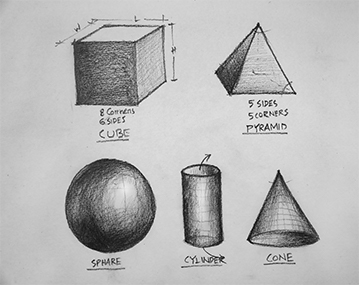 W
L
H
8 Corners
6 SIDES
CUBE
5 SIDES
5 CORNERS
PYRAMID
SPHARE
CYLINDER
CONE